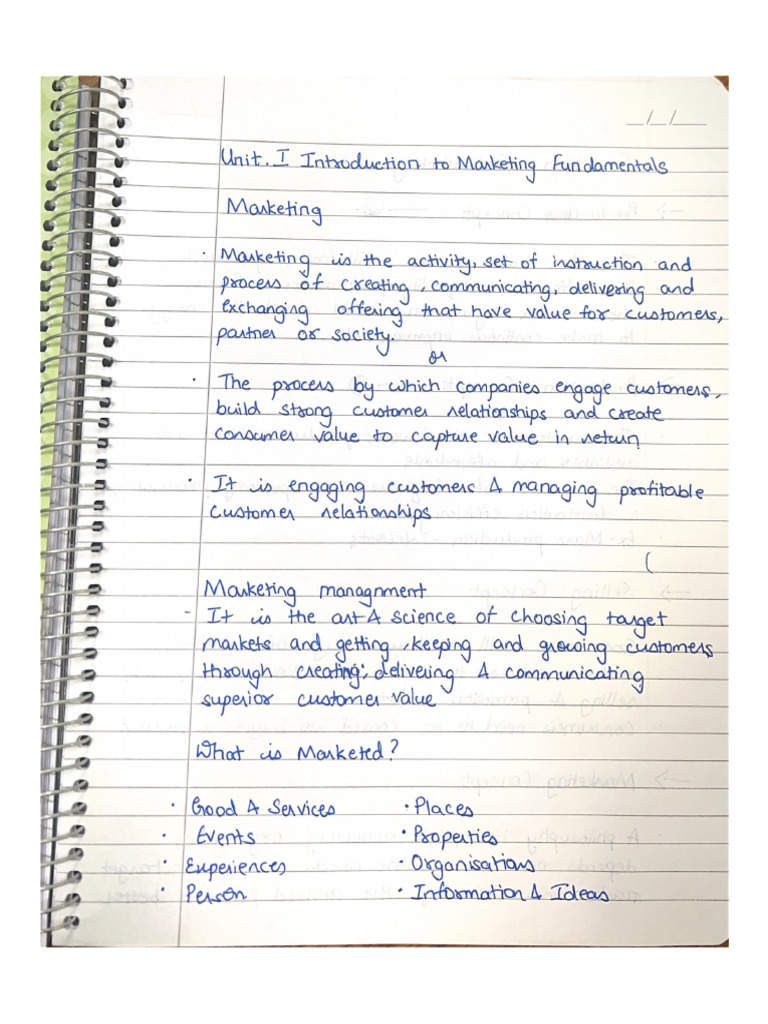 _/_/__
Unit. I Introduction to Marketing Fundamentals
Marketing
· Marketing is the activity, set of instruction and
process of creating, communicating, delivering and
exchanging offering that have value for customers,
partner or society.
or
· The process by which companies engage customers,
build strong customer relationships and create
consumer value to capture value in return
· It is engaging customers & managing profitable
customer relationships
(
Marketing managnment
- It is the art & science of choosing target
markets and getting, keeping and growing customers
through creating, delivering & communicating
superior customer value
What is Marketed?
· Good & Services · Places
· Events · Properties
· Experiences · Organisations
· Person · Information & Ideas